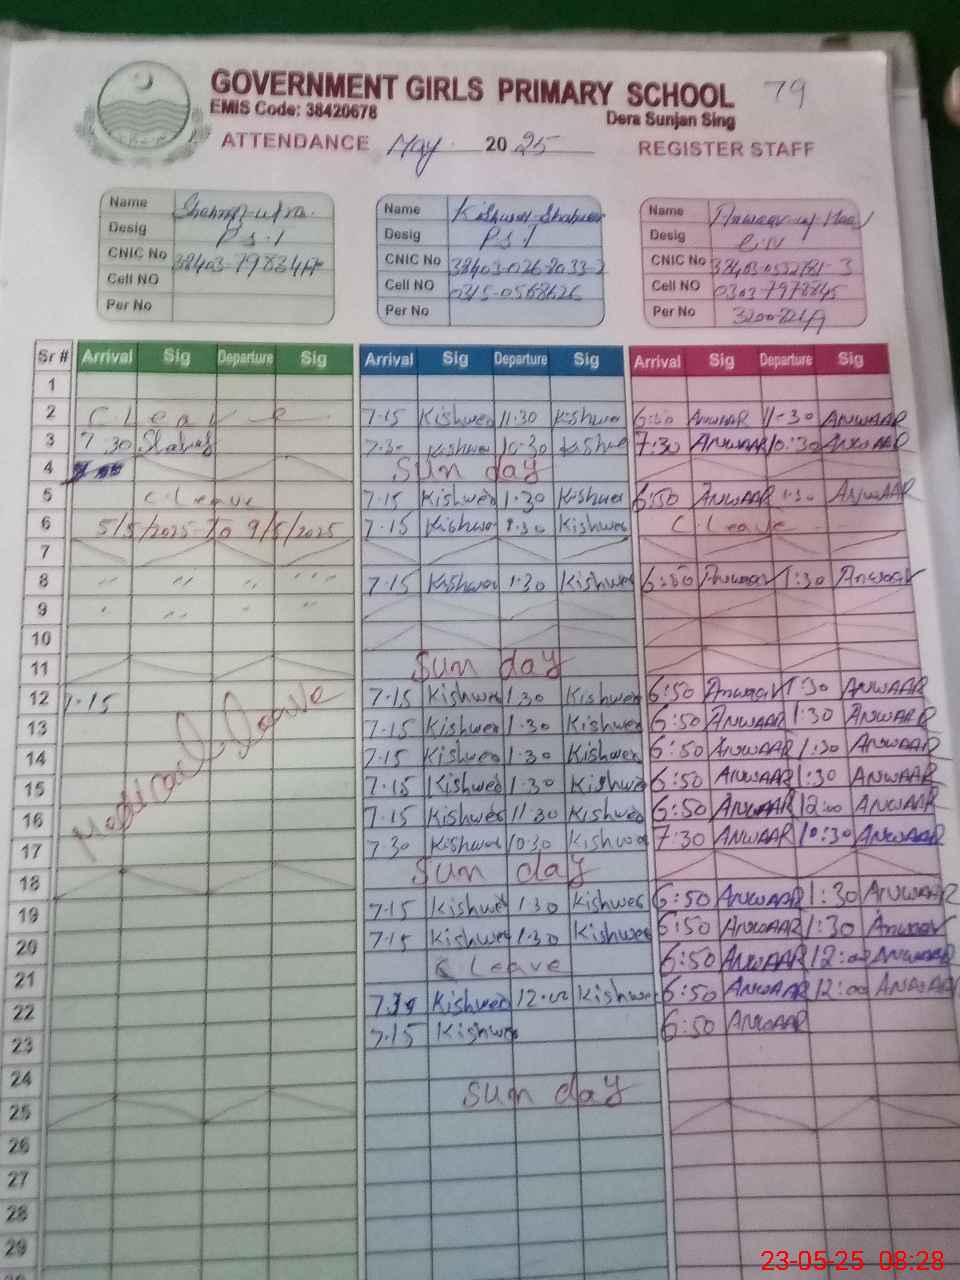 GOVERNMENT GIRLS PRIMARY SCHOOL 79
EMIS Code: 38420678 Dera Sunjan Sing
ATTENDANCE May 2025 REGISTER STAFF
Name Name Kishwer Shaheen Name
Desig P.S.T Desig P.S.T Desig
CNIC No CNIC No 38403-0262033-2 CNIC No
Cell NO Cell NO 0315-0568626 Cell NO 0303-7978845
Per No Per No Per No
Sr # Arrival Sig Departure Sig Arrival Sig Departure Sig Arrival Sig Departure Sig
1
2 C Leave 7.15 Kishwer 11.30 Kishwer 6:50 ANWAAR 11-30 ANWAAR
3 7.30 7.30 Kishwer 10.30 Kishwer 7:30 ANWAAR 10:30 ANWAAR
4 Sun day
5 C.Leave 7.15 Kishwer 1.30 Kishwer 6:50 ANWAAR 1:30 ANWAAR
6 5/5/2025 To 9/5/2025 7.15 Kishwer 1.30 Kishwer C.Leave
7
8 " " " " 7.15 Kishwer 1.30 Kishwer 6:50 Anwaar 1:30 Anwaar
9 " " "
10
11 Sun day
12 7.15 7.15 Kishwer 1.30 Kishwer 6:50 Anwaar 1:30 ANWAAR
13 Medical leave 7.15 Kishwer 1.30 Kishwer 6:50 ANWAAR 1:30 ANWAAR
14 7.15 Kishwer 1.30 Kishwer 6:50 ANWAAR 1:30 ANWAAR
15 7.15 Kishwer 1.30 Kishwer 6:50 ANWAAR 1:30 ANWAAR
16 7.15 Kishwer 11.30 Kishwer 6:50 ANWAAR 12:00 ANWAAR
17 7.30 Kishwer 10.30 Kishwer 7:30 ANWAAR 10:30 ANWAAR
18 Sun day
19 7.15 Kishwer 1.30 Kishwer 6:50 ANWAAR 1:30 ANWAAR
20 7.15 Kishwer 1.30 Kishwer 6:50 ANWAAR 1:30 Anwaar
21 C Leave 6:50 ANWAAR 12:00 ANWAAR
22 Kishwer 12.00 Kishwer 6:50 ANWAAR 12:00 ANWAAR
23 7.15 Kishwer 6:50 ANWAAR
24
25 Sun day
26
27
28
29
23-05-25 08:28